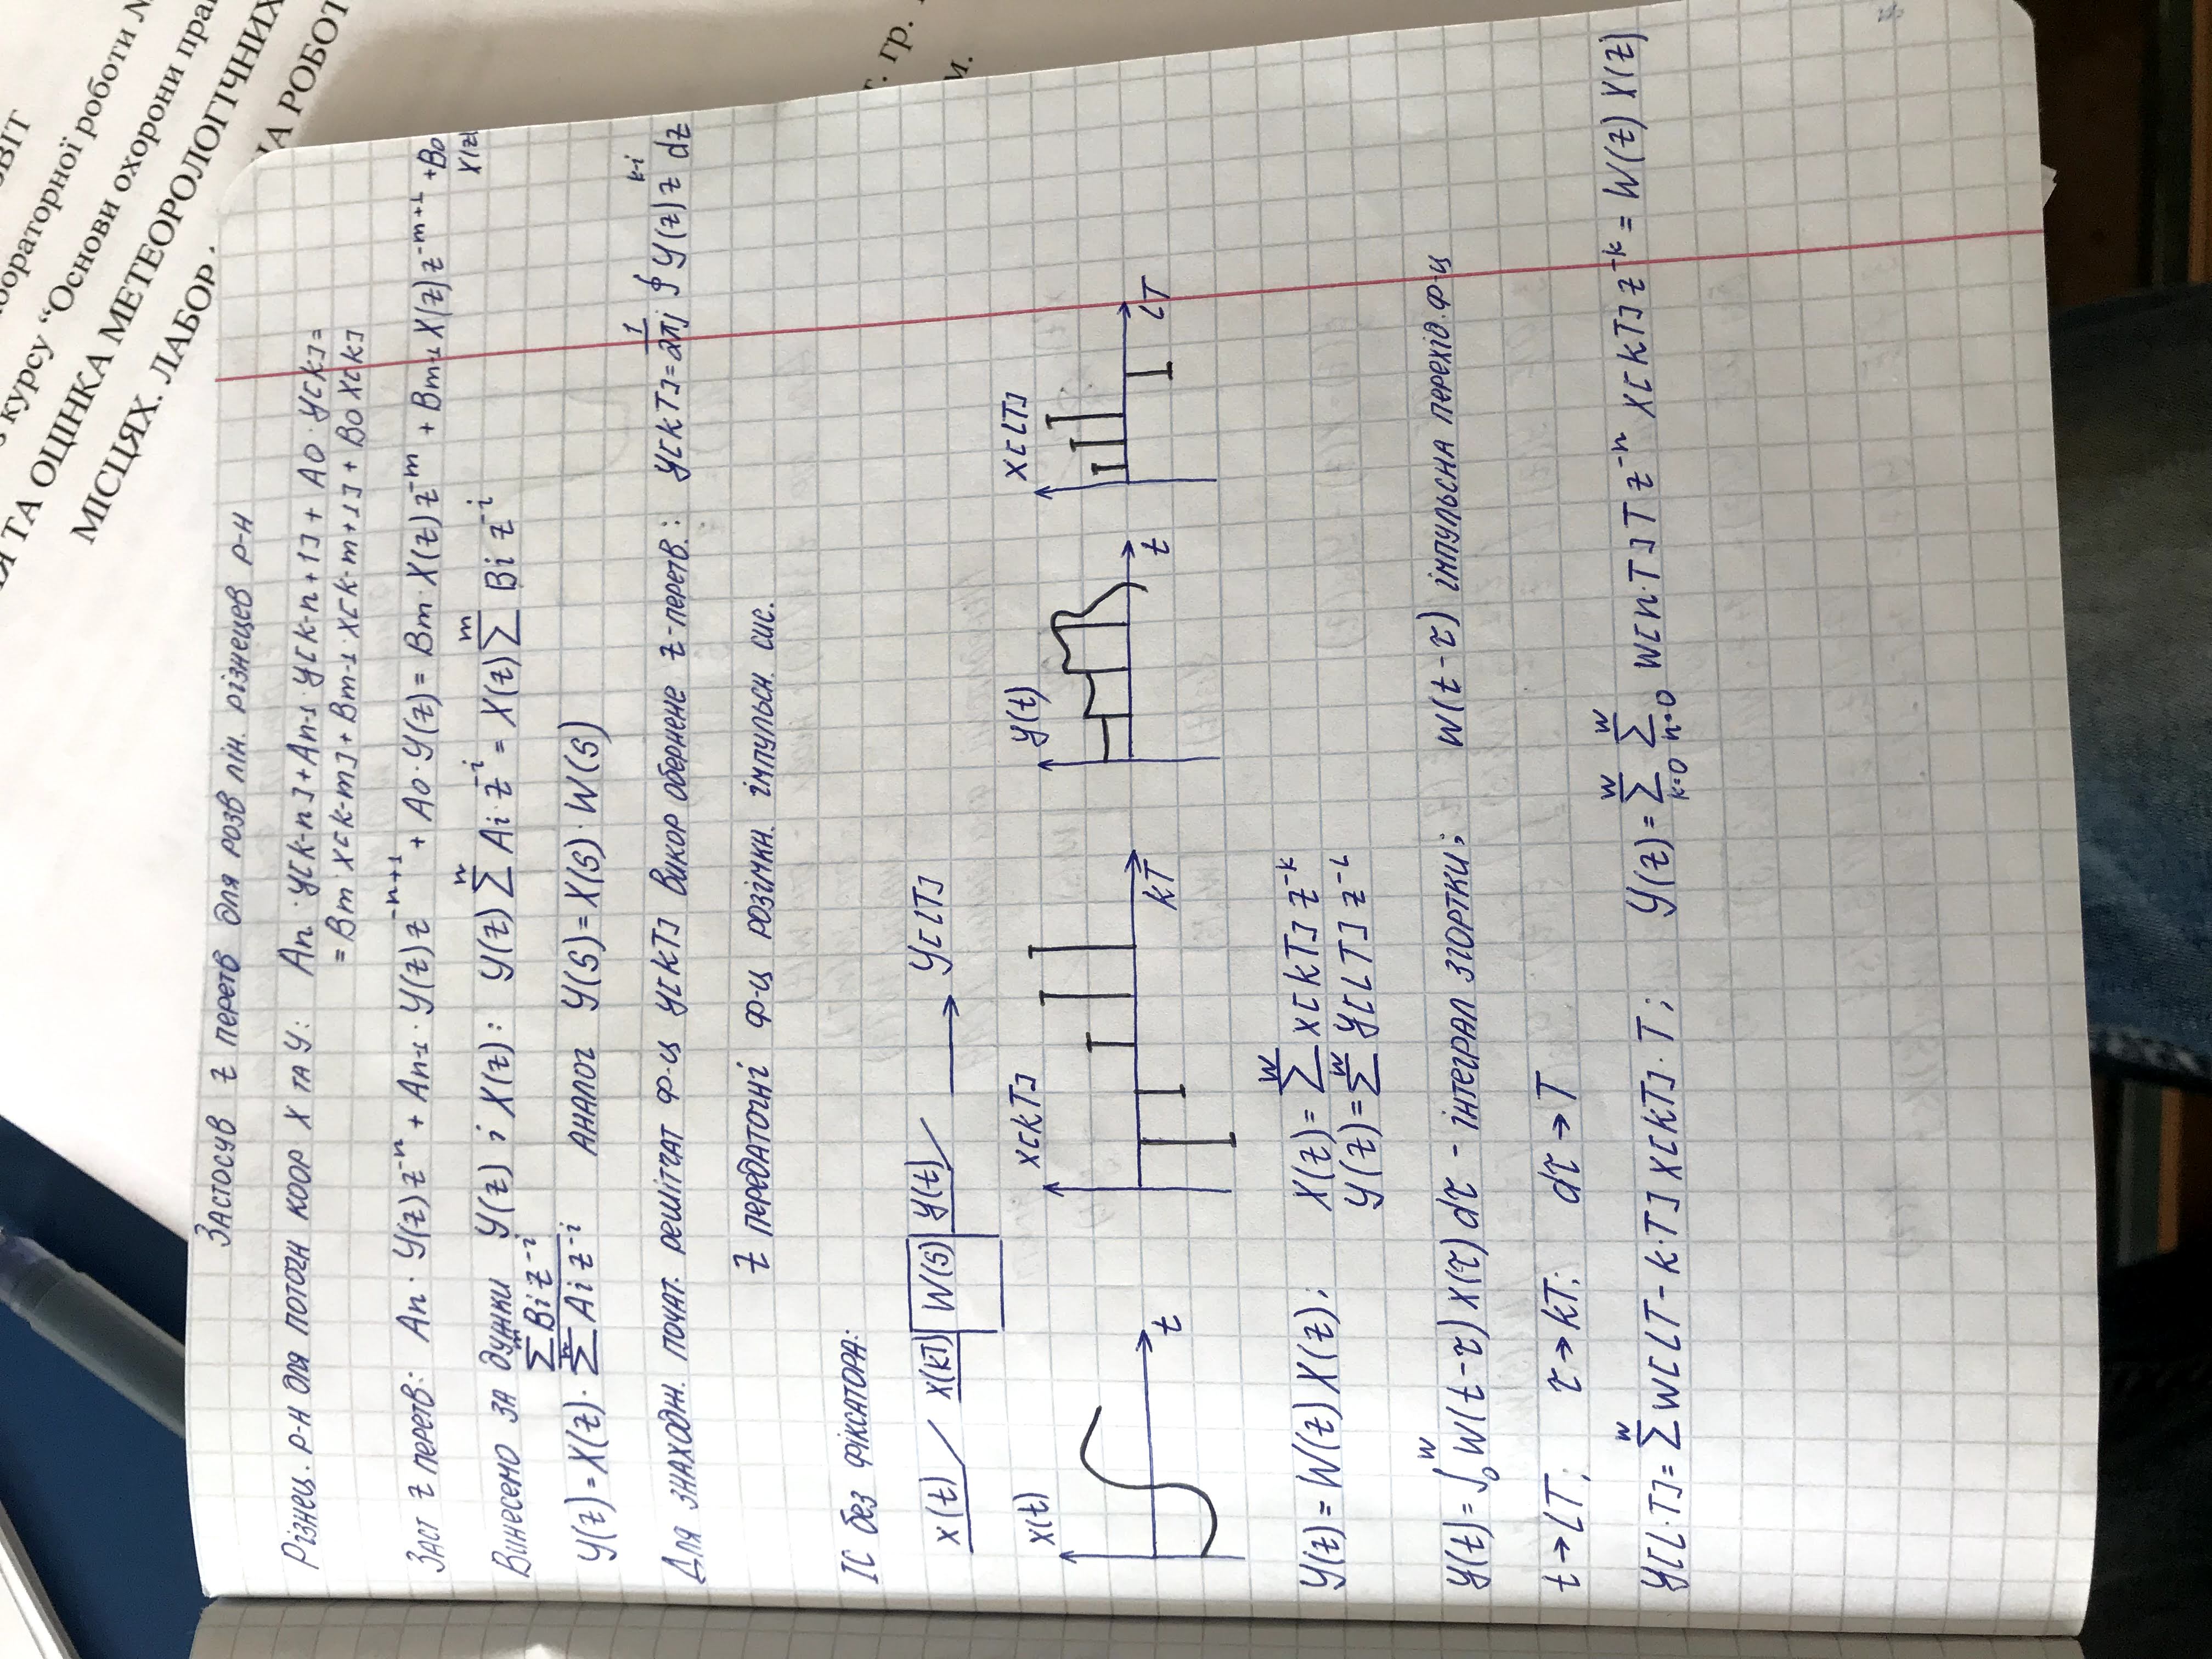 ЗВІТ
з курсу “Основи охорони
ТА ОЦІНКА МЕТЕОРОЛОГІЧНИХ
МІСЦЯХ. ЛАБОР
НА РОБОТ
гр.
м.
Застосув z перетв для розв лін. різнецев р-н
Різнец. р-н для поточн коор X та Y: An · y[k-n] + An-1 · y[k-n+1] + A0 · y[k] =
= Bm · x[k-m] + Bm-1 · x[k-m+1] + B0 x[k]
Заст z перетв: An · Y(z) z^-n + An-1 · Y(z) z^-n+1 + A0 · Y(z) = Bm · X(z) z^-m + Bm-1 X(z) z^-m+1 + B0
X(z)
Винесемо за дужки Y(z) і X(z): Y(z) Σ^n Ai · z^-i = X(z) Σ^m Bi z^-i
Y(z) = X(z) · Σ^m Bi z^-i / Σ^n Ai z^-i аналог Y(s) = X(s) · W(s)
Для знаходж. почат. решітчат ф-ц y[kT] викор обернене z-перетв.: y[kT] = 1/2πj ∮ Y(z) z^k-i dz
Z передаточні ф-ц розімкн. імпульсн. сис.
ІС без фіксатора:
x(t) x(kT) W(s) y(t) → Y[LT]
x(t) x[kT] y(t) x[LT]
t kT t LT
Y(z) = W(z) X(z); X(z) = Σ^w x[kT] z^-k
Y(z) = Σ^w y[LT] z^-L
y(t) = ∫_0^w w(t-τ) x(τ) dτ - інтеграл згортки; w(t-τ) імпульсна перехід. ф-ц
t → LT; τ → kT; dτ → T
y[L·T] = Σ^w w[LT - k·T] x[kT] · T; Y(z) = Σ_k=0^w Σ_n=0^w w[n·T] T z^-n x[kT] z^-k = W(z) X(z)